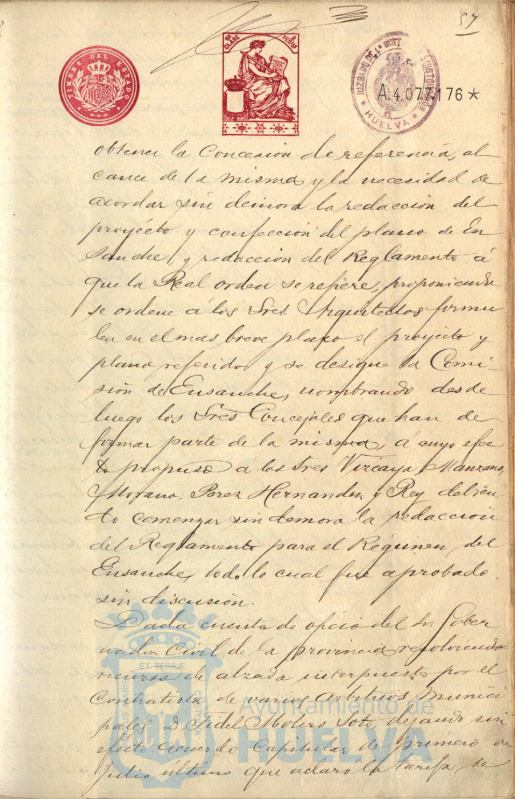 57
TIMBRE DEL ESTADO
A.4.077.176 *
HUELVA
obtener la Concesion de referencia, al
cance de la misma y la necesidad de
acordar sin demora la redaccion del
proyecto y confeccion del plano de En
sanche y redaccion del Reglamento á
que la Real orden se refiere, proponiendo
se ordene á los Sres Arquitectos formu
len en el mas breve plazo el proyecto y
plano referidos y se designe la Comi-
sión de Ensanche, nombrando desde
luego los Sres Concejales que han de
formar parte de la misma, á cuyo efec
to propuso a los Sres Vizcaya, Manzano,
Morano, Perez Hernandez y Rey debien
do comenzar sin demora la redaccion
del Reglamento para el Regimen del
Ensanche, todo lo cual fué aprobado
sin discusión.
Dada cuenta de oficio del Sr. Gober
nador Civil de la provincia resolviendo
recurso de alzada interpuesto por el
Contratista de varios arbitrios munici
pales D. Fidel Molers Soto, dejando sin
efecto acuerdo Capitular de primero de
Julio último que aclaró la tarifa de
Ayuntamiento de
HUELVA